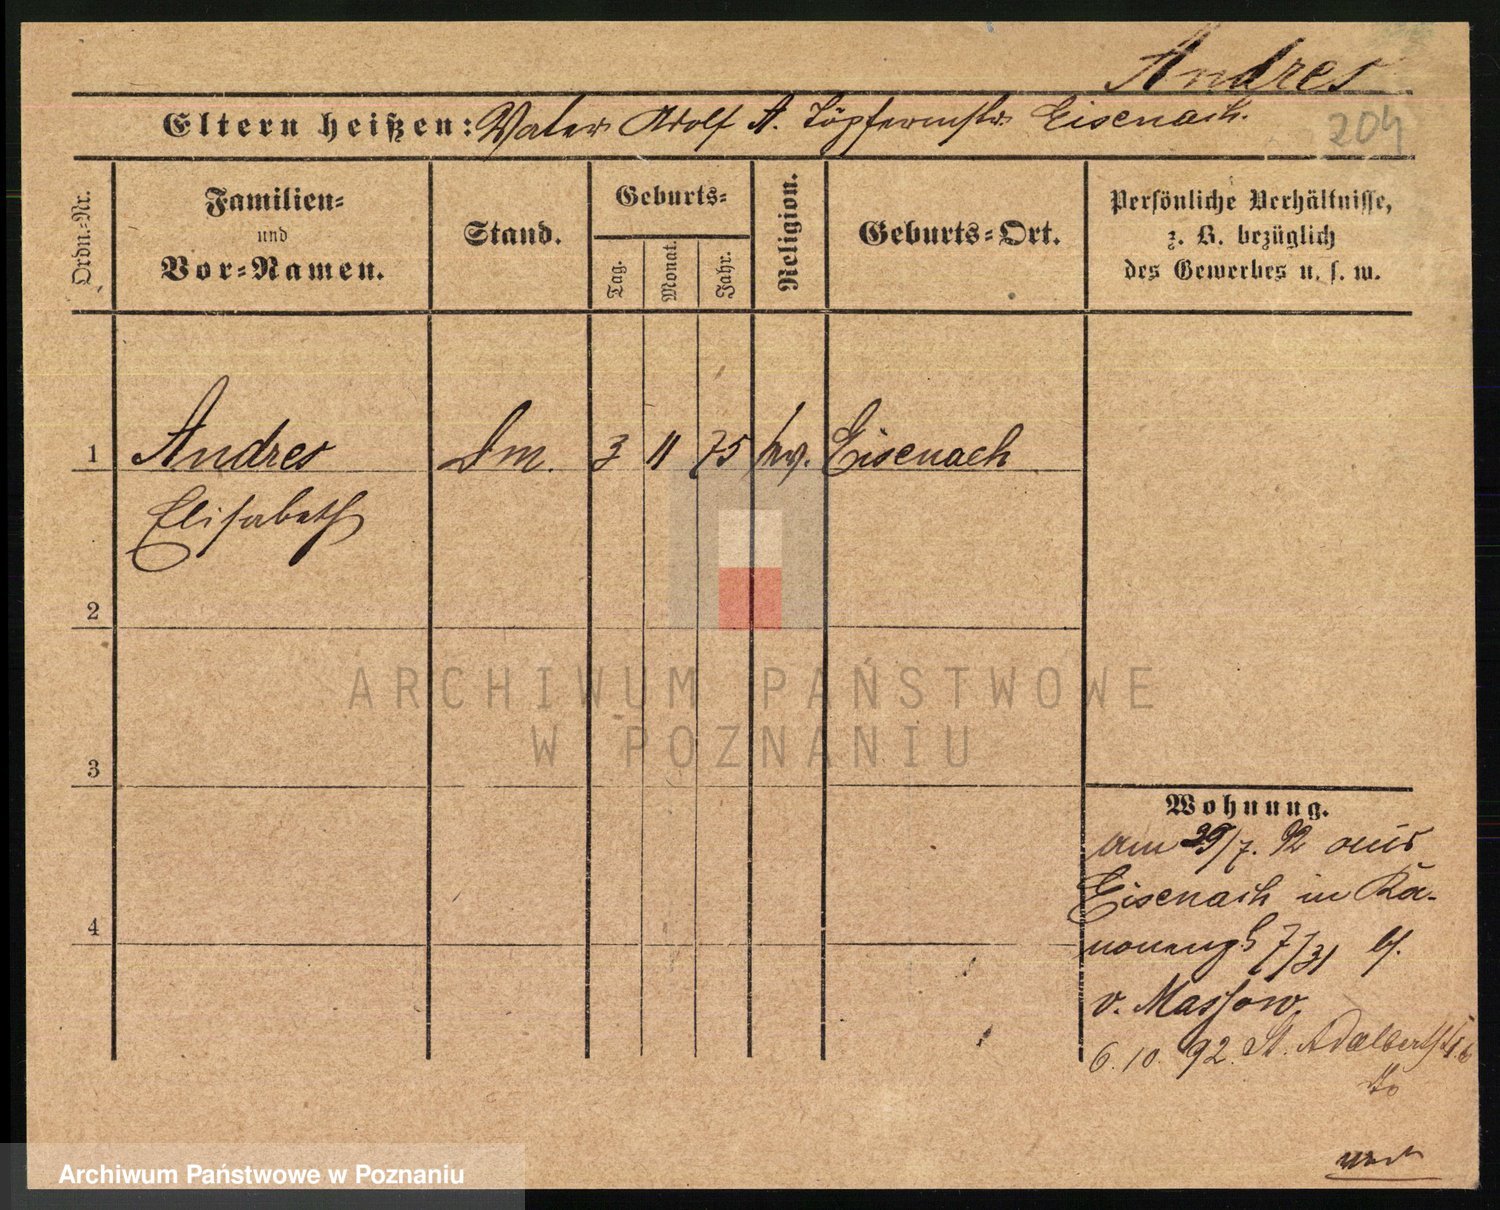 Andres
Eltern heißen: Vater Adolf A. Töpfermstr. Eisenach.
204
Ordn.-Nr.
Familien-
und
Vor-Namen.
Stand.
Geburts-
Tag.
Monat.
Jahr.
Religion.
Geburts-Ort.
Persönliche Verhältnisse,
z. B. bezüglich
des Gewerbes u. s. w.
1 Andres Dm. 3 11 75 ev. Eisenach
Elisabeth
2
3
4
Wohnung.
am 29/7. 92 aus
Eisenach in Ka-
nonenpl 7/31 bf.
v. Massow
6. 10. 92. St. Adalbertstr.
ARCHIWUM PAŃSTWOWE
W POZNANIU
Archiwum Państwowe w Poznaniu